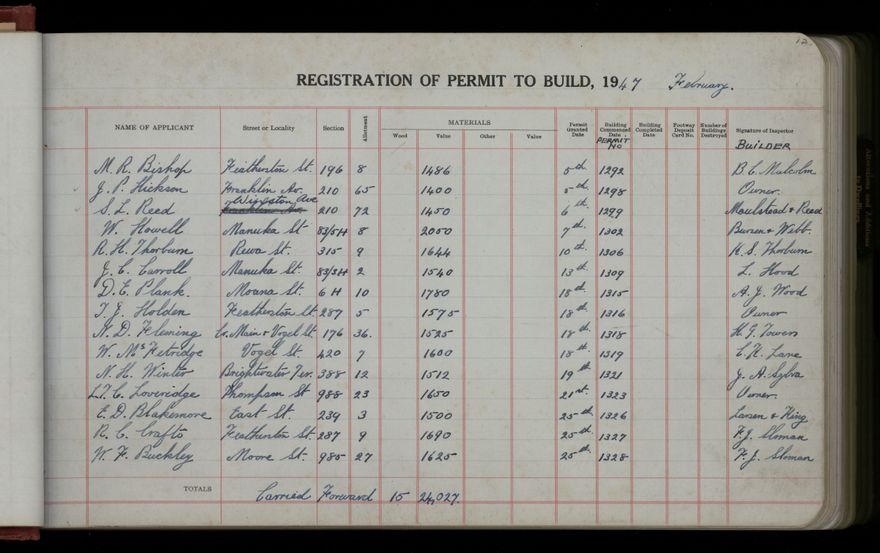 12
REGISTRATION OF PERMIT TO BUILD, 1947 February.
NAME OF APPLICANT Street or Locality Section Allotment MATERIALS Wood Value Other Value Permit Granted Date Building Commenced Date PERMIT NO Building Completed Date Footway Deposit Card No. Number of Buildings Destroyed Signature of Inspector BUILDER
M. R. Bishop Featherston St. 196 8 1486 5th 1292 B. C. Malcolm
J. P. Hickson Franklin Av. 210 65 1400 5th 1298 Owner.
S. L. Reed Wigston Ave 210 72 1450 6th 1299 Moulstead & Reed
W. Howell Manuka St 83/54 8 2050 7th 1302 & Webb.
R. H. Thorburn Rewa St. 315 9 1644 10th 1306 K. S. Thorburn
J. C. Carroll Manuka St. 2 1540 13th 1309 L. Hood
D. E. Plank. Moana St. 6H 10 1780 18th 1315 A. J. Wood
T. J. Holden Featherston St 287 5 1575 18th 1316 Owner
N. D. Fleming Cr. Main & Vogel St. 176 36. 1525 18th 1318 H. G. Towers
W. McFetridge Vogel St. 420 7 1600 18th 1319 E. H. Lane
N. H. Winter Brightwater Ter. 388 12 1512 19th 1321 J. A. Sylva
L. T. C. Loveridge Thompson St 988 23 1650 21st. 1323 Owner.
E. D. Blakemore East St. 239 3 1500 25th 1326 Larsen & King
R. C. Crafts Featherston St. 287 9 1690 25th 1327 F. J. Sloman
W. F. Buckley Moore St. 985 27 1625 25th 1328 F. J. Sloman
TOTALS Carried Forward 15 24,027.